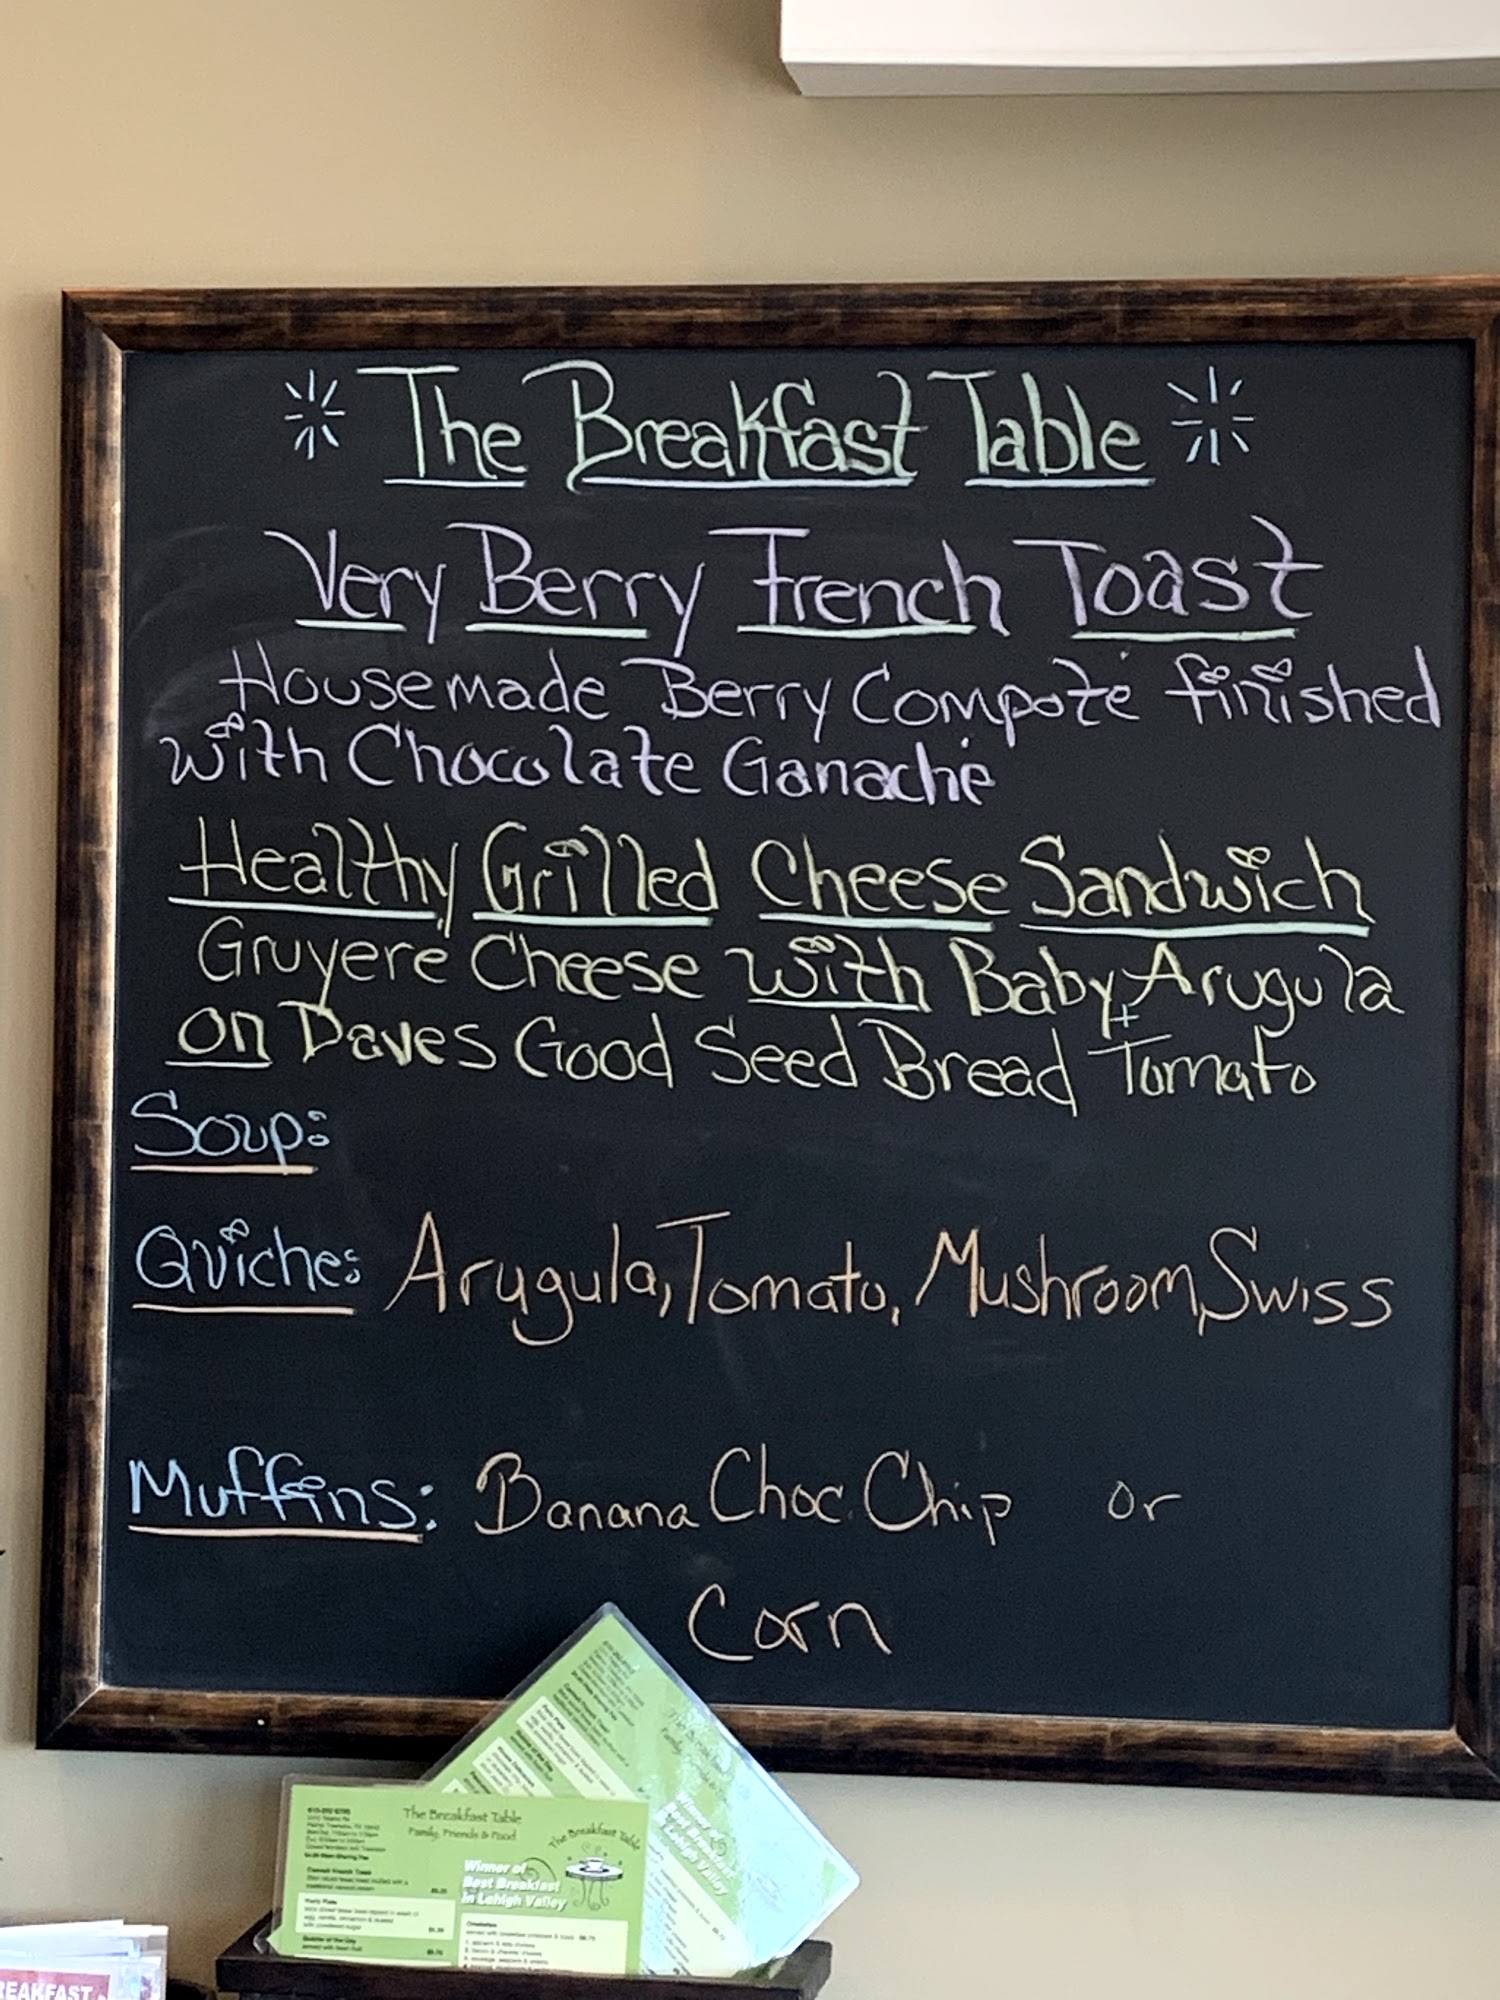 The Breakfast Table
Very Berry French Toast
Housemade Berry Compote finished
with Chocolate Ganache
Healthy Grilled Cheese Sandwich
Gruyere Cheese with Baby Arugula
on Daves Good Seed Bread + Tomato
Soup:
Quiche: Arugula, Tomato, Mushroom, Swiss
Muffins: Banana Choc. Chip or
Corn
The Breakfast Table
Family, Friends & Food
The Breakfast Table
Winner of
Best Breakfast
in Lehigh Valley
Winner of
Best Breakfast
in Lehigh Valley
REAKFAST